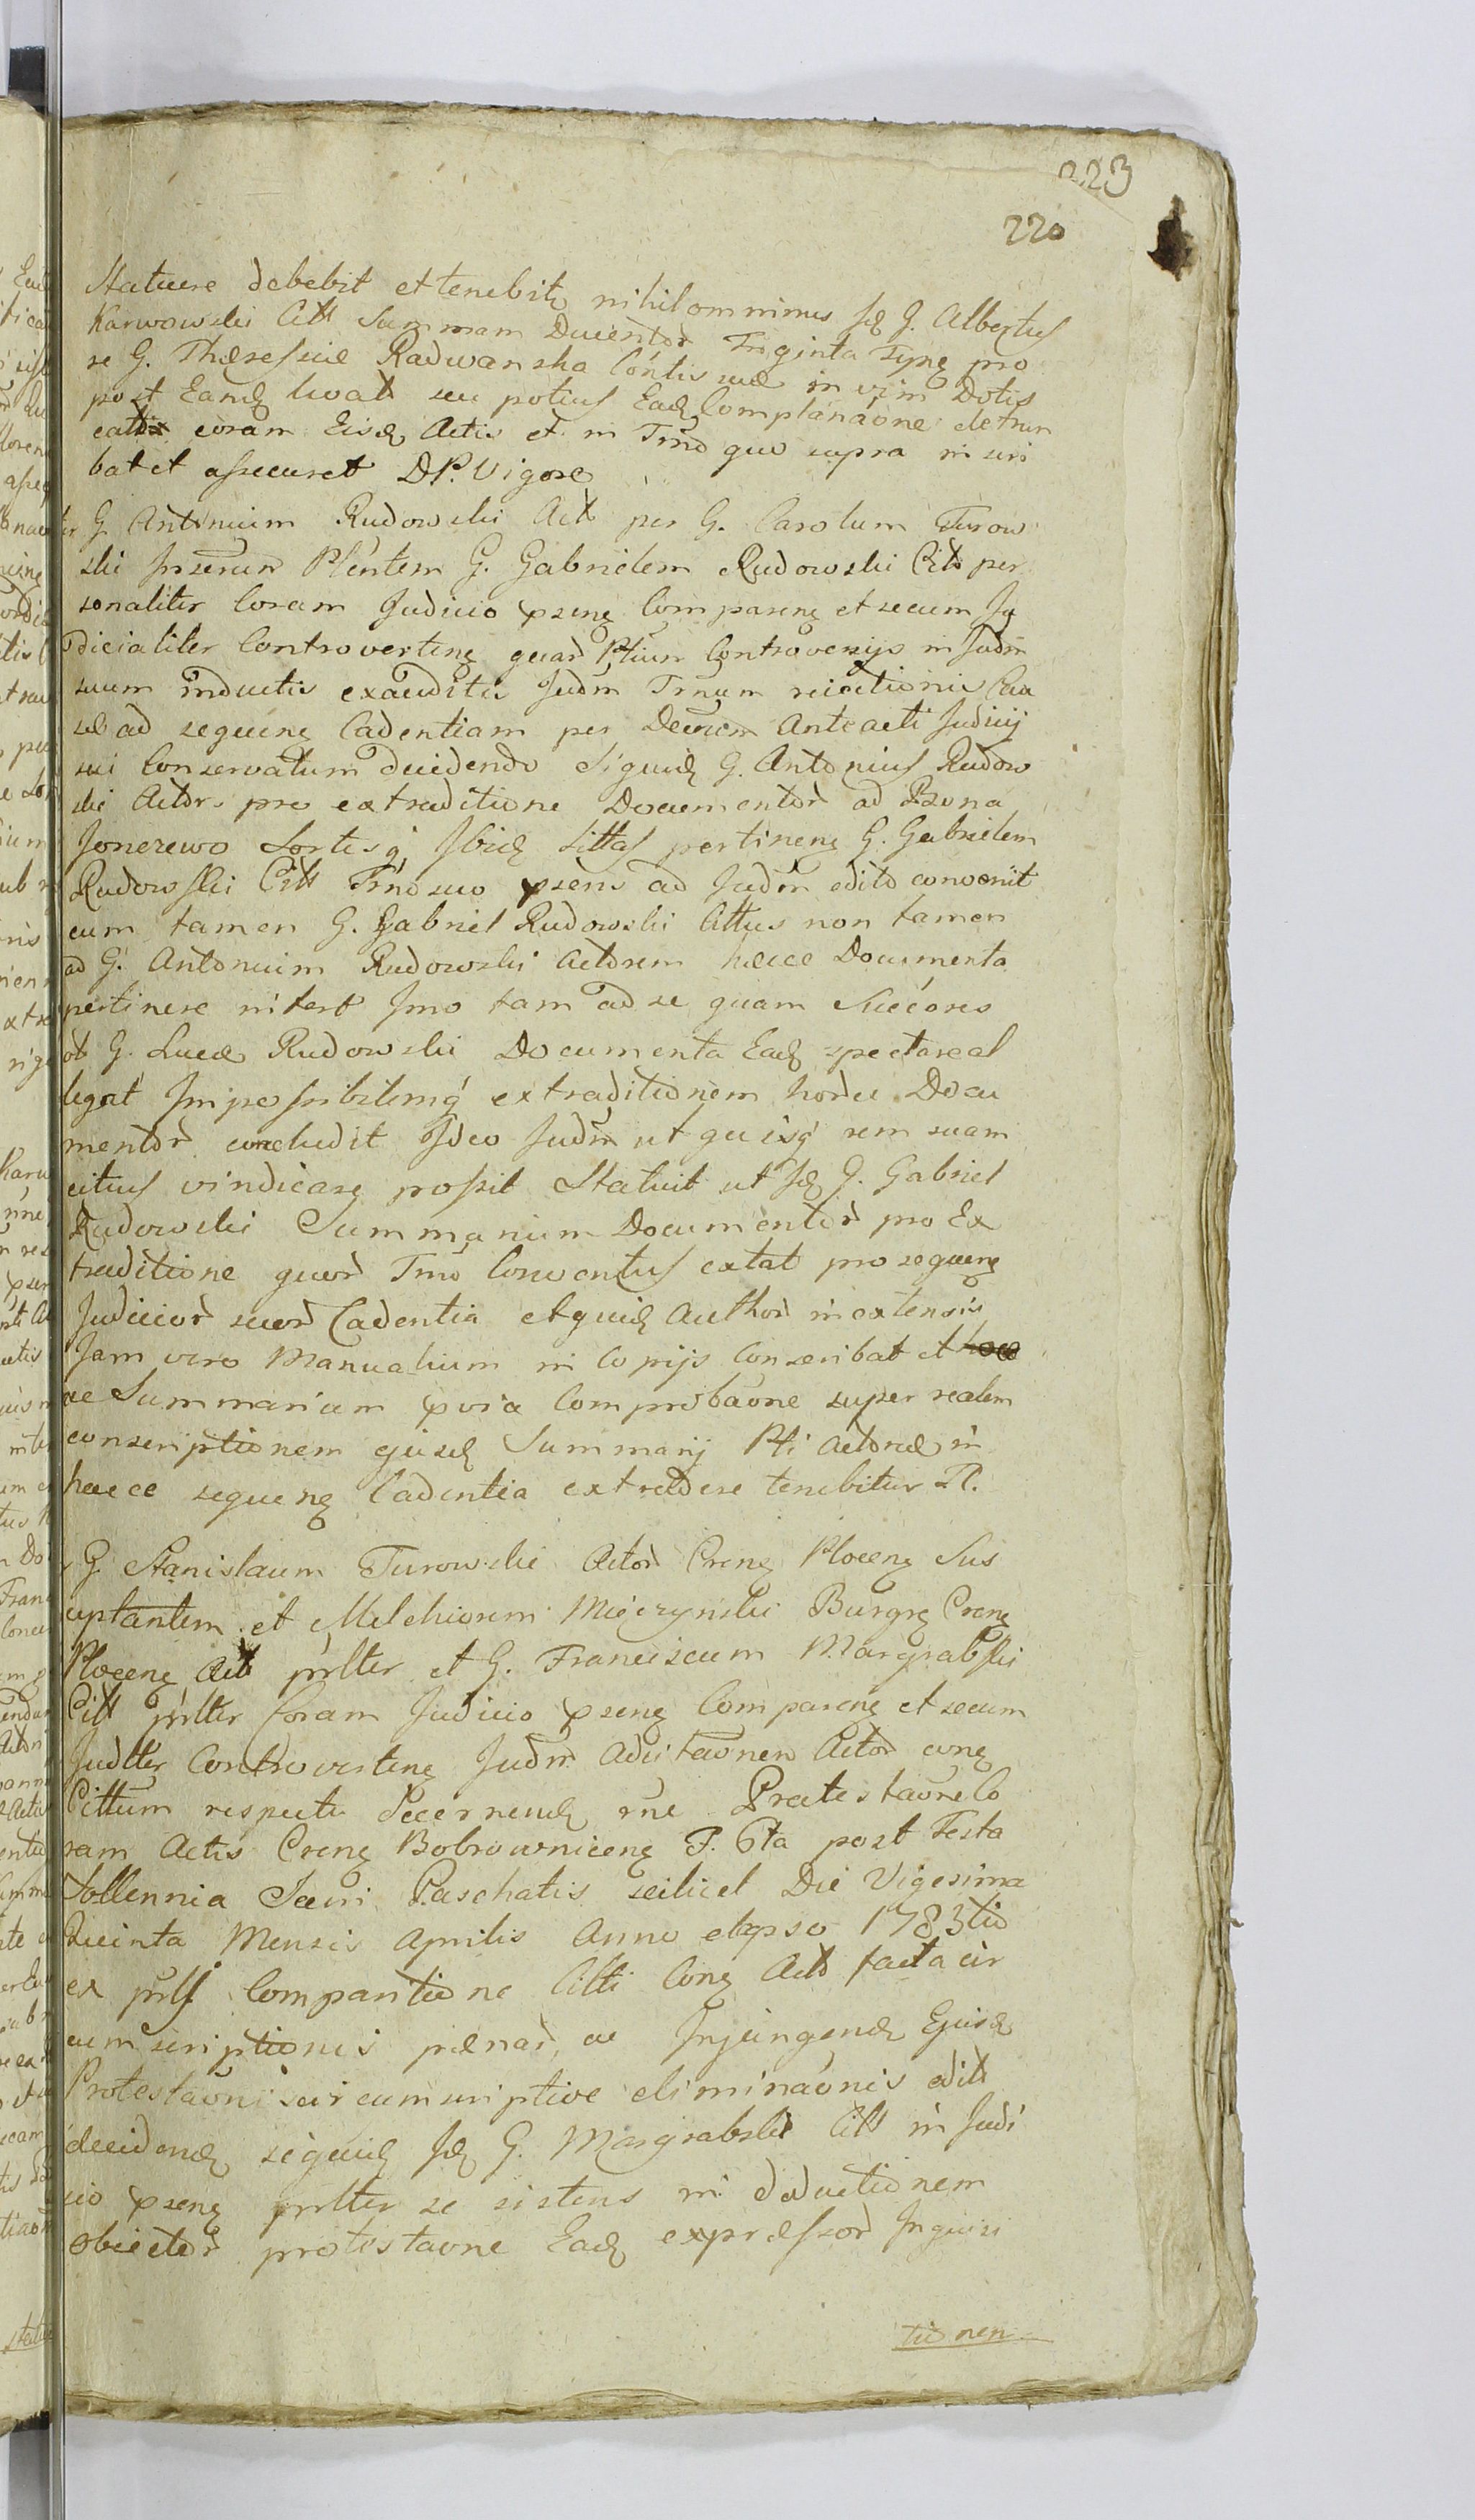 223
220
Statuere debebit et tenebitr nihilominus Id G. Albertus
Karwowski Citt Summam Ducentor Triginta Tynf pro
se G. Theressiae Radwanska Contis suae in vim Dotis
post Eand levat seu potius Ead Complanaone detrun
catoꝝ coram Eisd Actis et in Tmo quo supra inscri
bat et assecuret D.P. Vigore
Inter G. Antonium Rudowski Act per G. Carolum Turow
ski Inserun Plentem G. Gabrielem Rudowski Citt per
sonaliter Coram Judicio pseng Compareng et secum Ju
dicialiter Controverteng quar Ptium Controversijs in Judm
suum inductis exauditis Judm Trnum reiectionis Cau
sae ad sequeng Cadentiam per Decrem Anteacti Judicij
sui Conservatum decidendo Siquid G. Antonius Rudow
ski Actor pro extraditione Documentor ad Bona
Jonczewo Sortesq Ibid Sittas pertineng G. Gabrielem
Rudowski Citt Tmo suo psens ad Judm edito convenit
cum tamen G. Gabriel Rudowski Cittus non tamen
ad G. Antonium Rudowski Actorem haece Documenta
pertinere nitert Imo tam ad se quam Succores
ol G. Lucae Rudowski Documenta Ead spectare al
legat Impossibilemq extraditionem horce Docu
mentor concludit Ideo Judm ut quisq rem suam
citius vindicare possit Statuit ut Id G. Gabriel
Rudowski Summarium Documentor pro Ex
traditione quor Tmo Conventus extat pro sequeng
Judicior suor Cadentia et quid Author in extensis
Jam vero Manualium in Copijs Conscribat et
ac Summarium pvia Comprobaone super realem
conscriptionem ejusd Summarij Pti Actoreae in
haece sequeng Cadentia extradere tenebitur P.
Inter G Stanislaum Turowski Actor Creng Ploceng Sus
ceptantem et Melchiorem Mięczynski Burgrg Creng
Ploceng Act prlter et G. Franciscum Margrabski
Citt prlter Coram Judicio pseng Compareng et secum
Judlter Controverteng Judm Adcitaonen Actor cong
Cittum respectu Decernend rne Protestaone Co
ram Actis Creng Bobrowniceng F. 6ta post Festa
Sollennia Sacri Paschatis scilicet Die Vigesima
Quinta Mensis Aprilis Anno elapso 1783tio
ex prls Comparitione Citti Cong Act facta cir
cumscriptionis paenar, ac Injungend Ejusd
Protestaonis circumscriptive eliminaonis edit
decidend siquid Id G. Margrabski Citt in Judi
cio pseng prlter se sistens in deductionem
Obiector protestaone Ead expraessor Inquisi
tionen